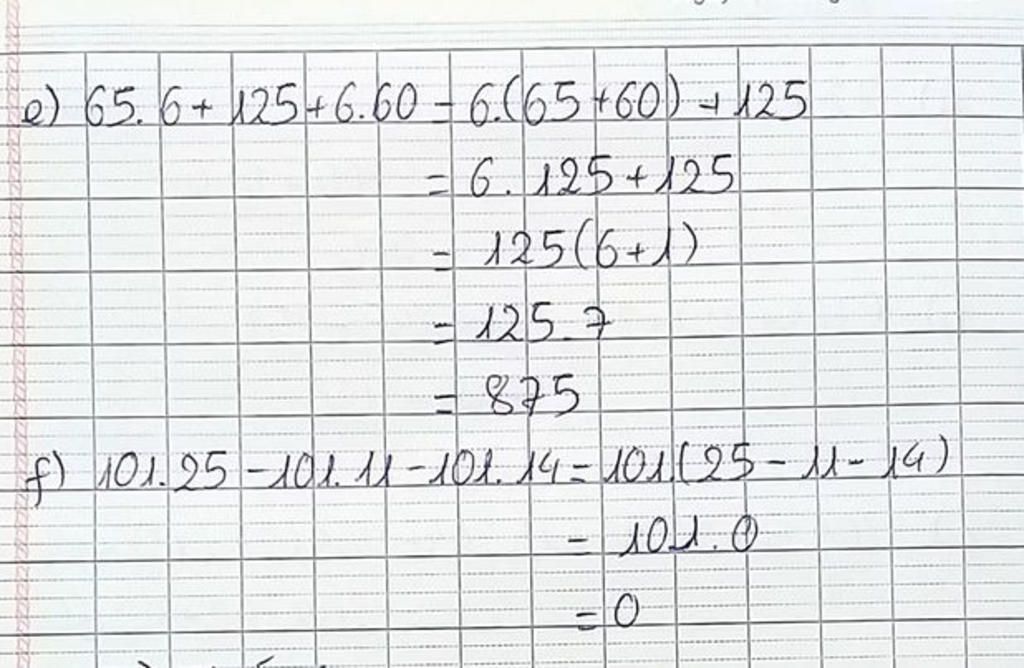 e) 65. 6 + 125 + 6.60 = 6.(65+60) + 125
= 6. 125 + 125
= 125(6+1)
= 125.7
= 875
f) 101.25 - 101.11 - 101.14 = 101.(25 - 11 - 14)
= 101.0
= 0